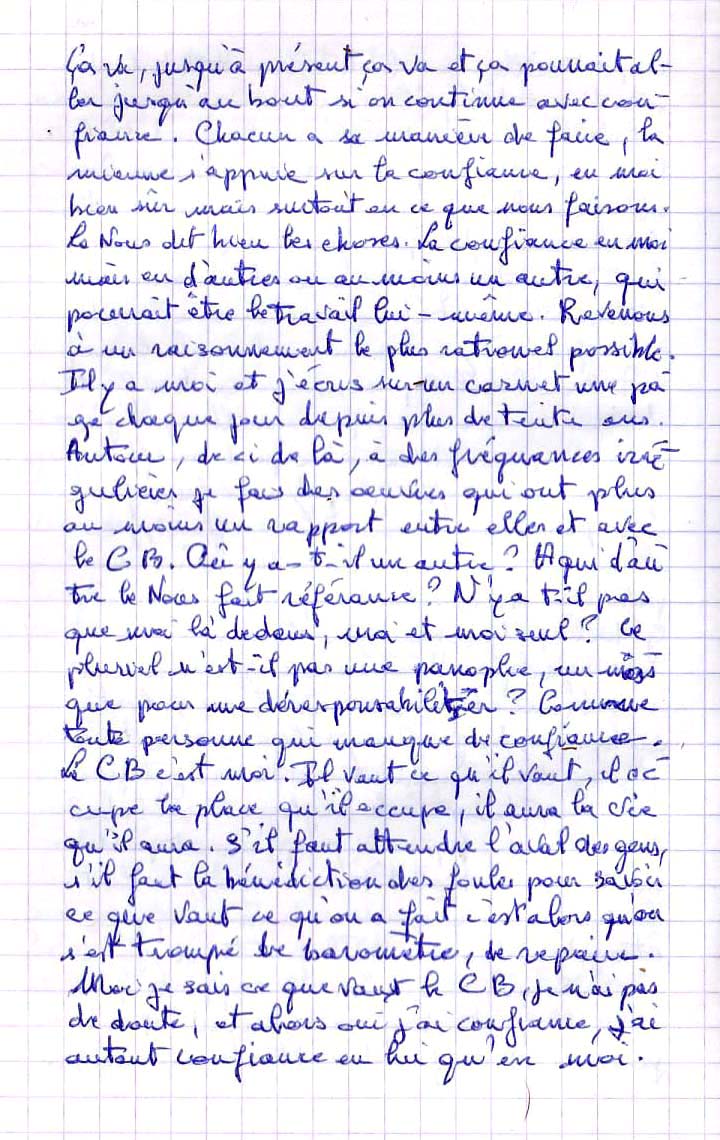 Ça va, jusqu'à présent ça va et ça pourrait al-
ler jusqu'au bout si on continue avec con-
fiance. Chacun a sa manière de faire, la
mienne s'appuie sur la confiance, en moi
bien sûr mais surtout en ce que nous faisons.
Le Nous dit bien les choses. La confiance en moi
mais en d'autres ou au moins un autre, qui
pourrait être le travail lui-même. Revenons
à un raisonnement le plus rationnel possible.
Il y a moi et j'écris sur un carnet une pa-
ge chaque jour depuis plus de trente ans.
Autour, de ci de là, à des fréquances irré-
gulières je fais des oeuvres qui ont plus
au moins un rapport entre elles et avec
le CB. Où y a-t-il un autre? A qui d'au-
tre le Nous fait référance? N'y a t-il pas
que moi là dedans, moi et moi seul? Ce
pluriel n'est-il pas une panoplie, un mas
que pour me déresponsabilitser? Comme
toute personne qui manque de confiance.
Le CB c'est moi. Il vaut ce qu'il vaut, il oc-
cupe la place qu'il occupe, il aura la vie
qu'il aura. S'il faut attendre l'aval des gens,
s'il faut la bénédiction des foules pour savoir
ce que vaut ce qu'on a fait c'est alors qu'on
s'est trompé de baromètre, de repaire.
Moi je sais ce que vaut le CB, je n'ai pas
de doute, et alors oui j'ai confiance, j'ai
autant confiance en lui qu'en moi.